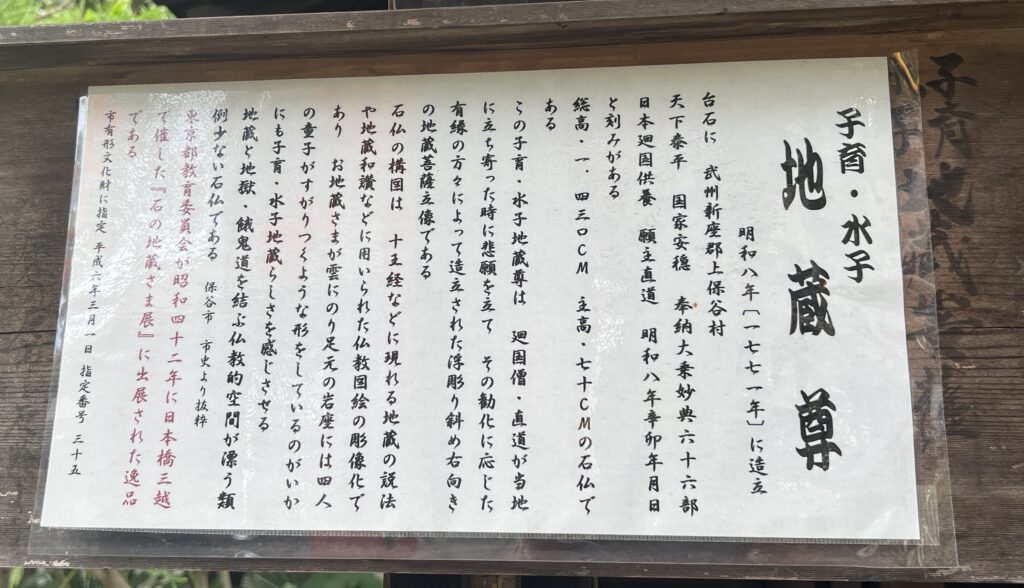 子育・水子
地蔵尊
明和八年〔一七七一年〕に造立
台石に 武州新座郡上保谷村
天下泰平 国家安穏 奉納大乗妙典六十六部
日本廻国供養 願主直道 明和八年辛卯年月日
と刻みがある
総高・一.四三〇CM 主高・七十CMの石仏で
ある
この子育・水子地蔵尊は 廻国僧・直道が当地
に立ち寄った時に悲願を立て その勧化に応じた
有縁の方々によって造立された浮彫り斜め右向き
の地蔵菩薩立像である
石仏の構図は 十王経などに現れる地蔵の説法
や地蔵和讃などに用いられた仏教図絵の彫像化で
あり お地蔵さまが雲にのり足元の岩座には四人
の童子がすがりつくような形をしているのがいか
にも子育・水子地蔵らしさを感じさせる
地蔵と地獄・餓鬼道を結ぶ仏教的空間が漂う類
例少ない石仏である 保谷市 市史より抜粋
東京都教育委員会が昭和四十二年に日本橋三越
て催した『石の地蔵さま展』に出展された逸品
である
市有形文化財に指定 平成六年三月一日 指定番号 三十五
子育地蔵尊